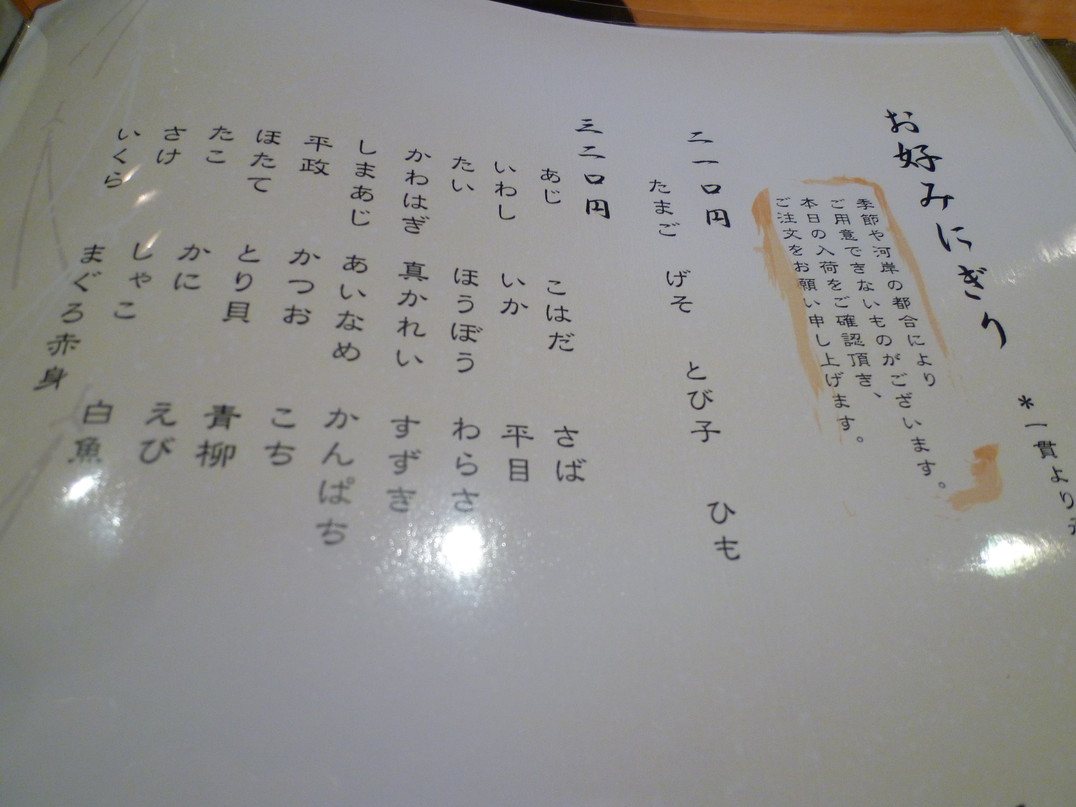 *一貫より
お好みにぎり
季節や河岸の都合により
ご用意できないものがございます。
本日の入荷をご確認頂き、
ご注文をお願い申し上げます。
二一〇円
たまご げそ とび子 ひも
三二〇円
あじ こはだ さば
いわし いか 平目
たい ほうぼう わらさ
かわはぎ 真かれい すずき
しまあじ あいなめ かんぱち
平政 かつお こち
ほたて とり貝 青柳
たこ かに えび
さけ しゃこ 白魚
いくら まぐろ赤身